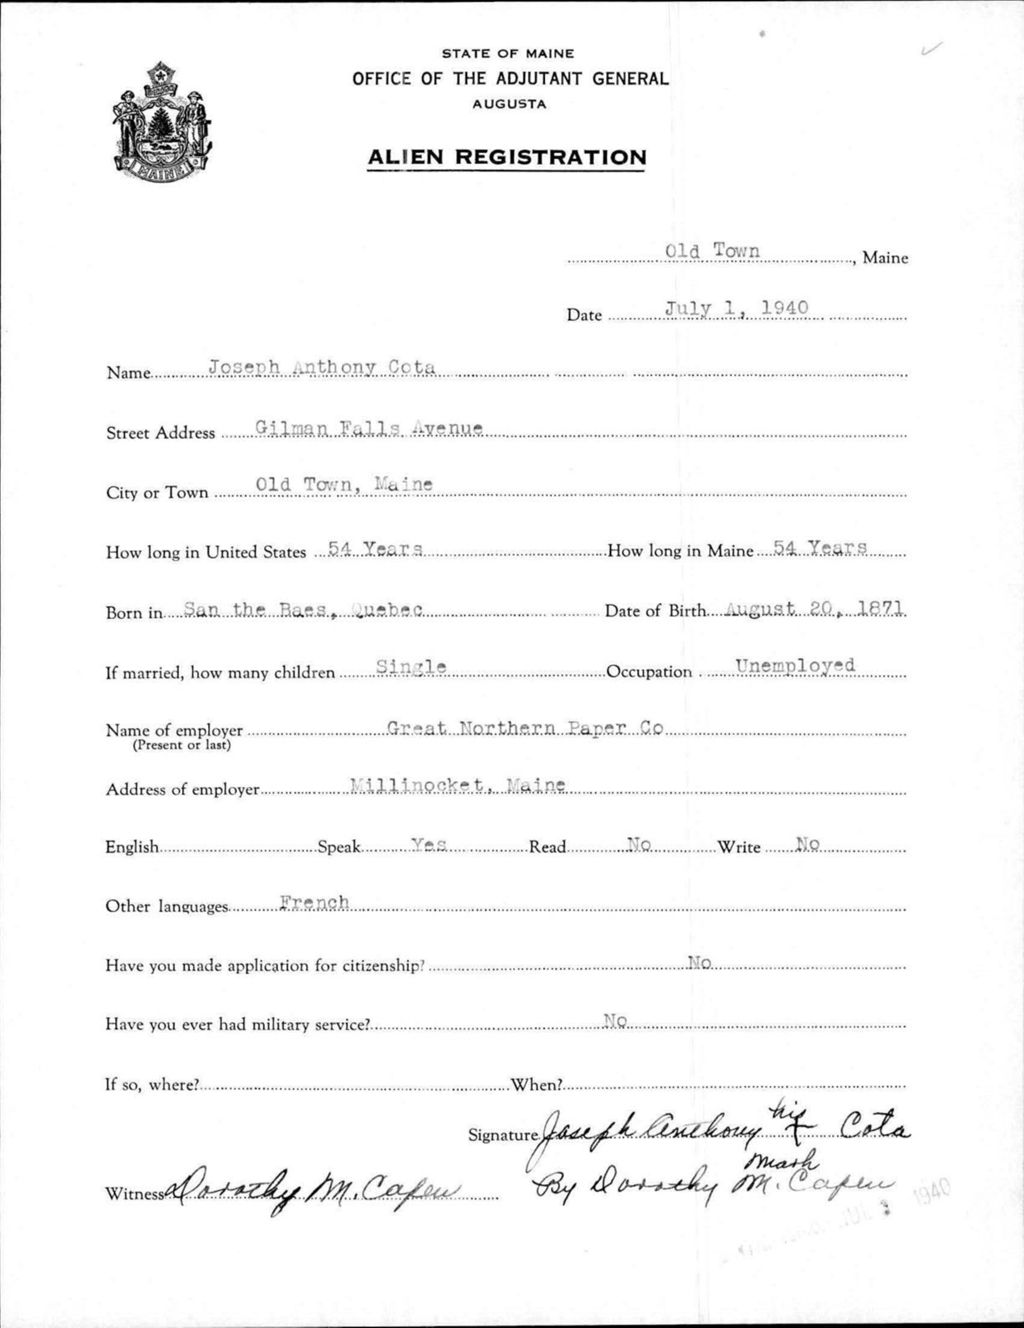 STATE OF MAINE
OFFICE OF THE ADJUTANT GENERAL
AUGUSTA
ALIEN REGISTRATION
MAINE
Old Town, Maine
Date July 1, 1940
Name Joseph Anthony Cota
Street Address Gilman Falls Avenue
City or Town Old Town, Maine
How long in United States 54 Years How long in Maine 54 Years
Born in San the Baes, Quebec Date of Birth August 20, 1871
If married, how many children Single Occupation Unemployed
Name of employer Great Northern Paper Co
(Present or last)
Address of employer Millinocket, Maine
English Speak Yes Read No Write No
Other languages French
Have you made application for citizenship? No
Have you ever had military service? No
If so, where? When?
Signature Joseph Anthony his X Cota
mark
Witness Dorothy M. Capen By Dorothy M. Capen
1940